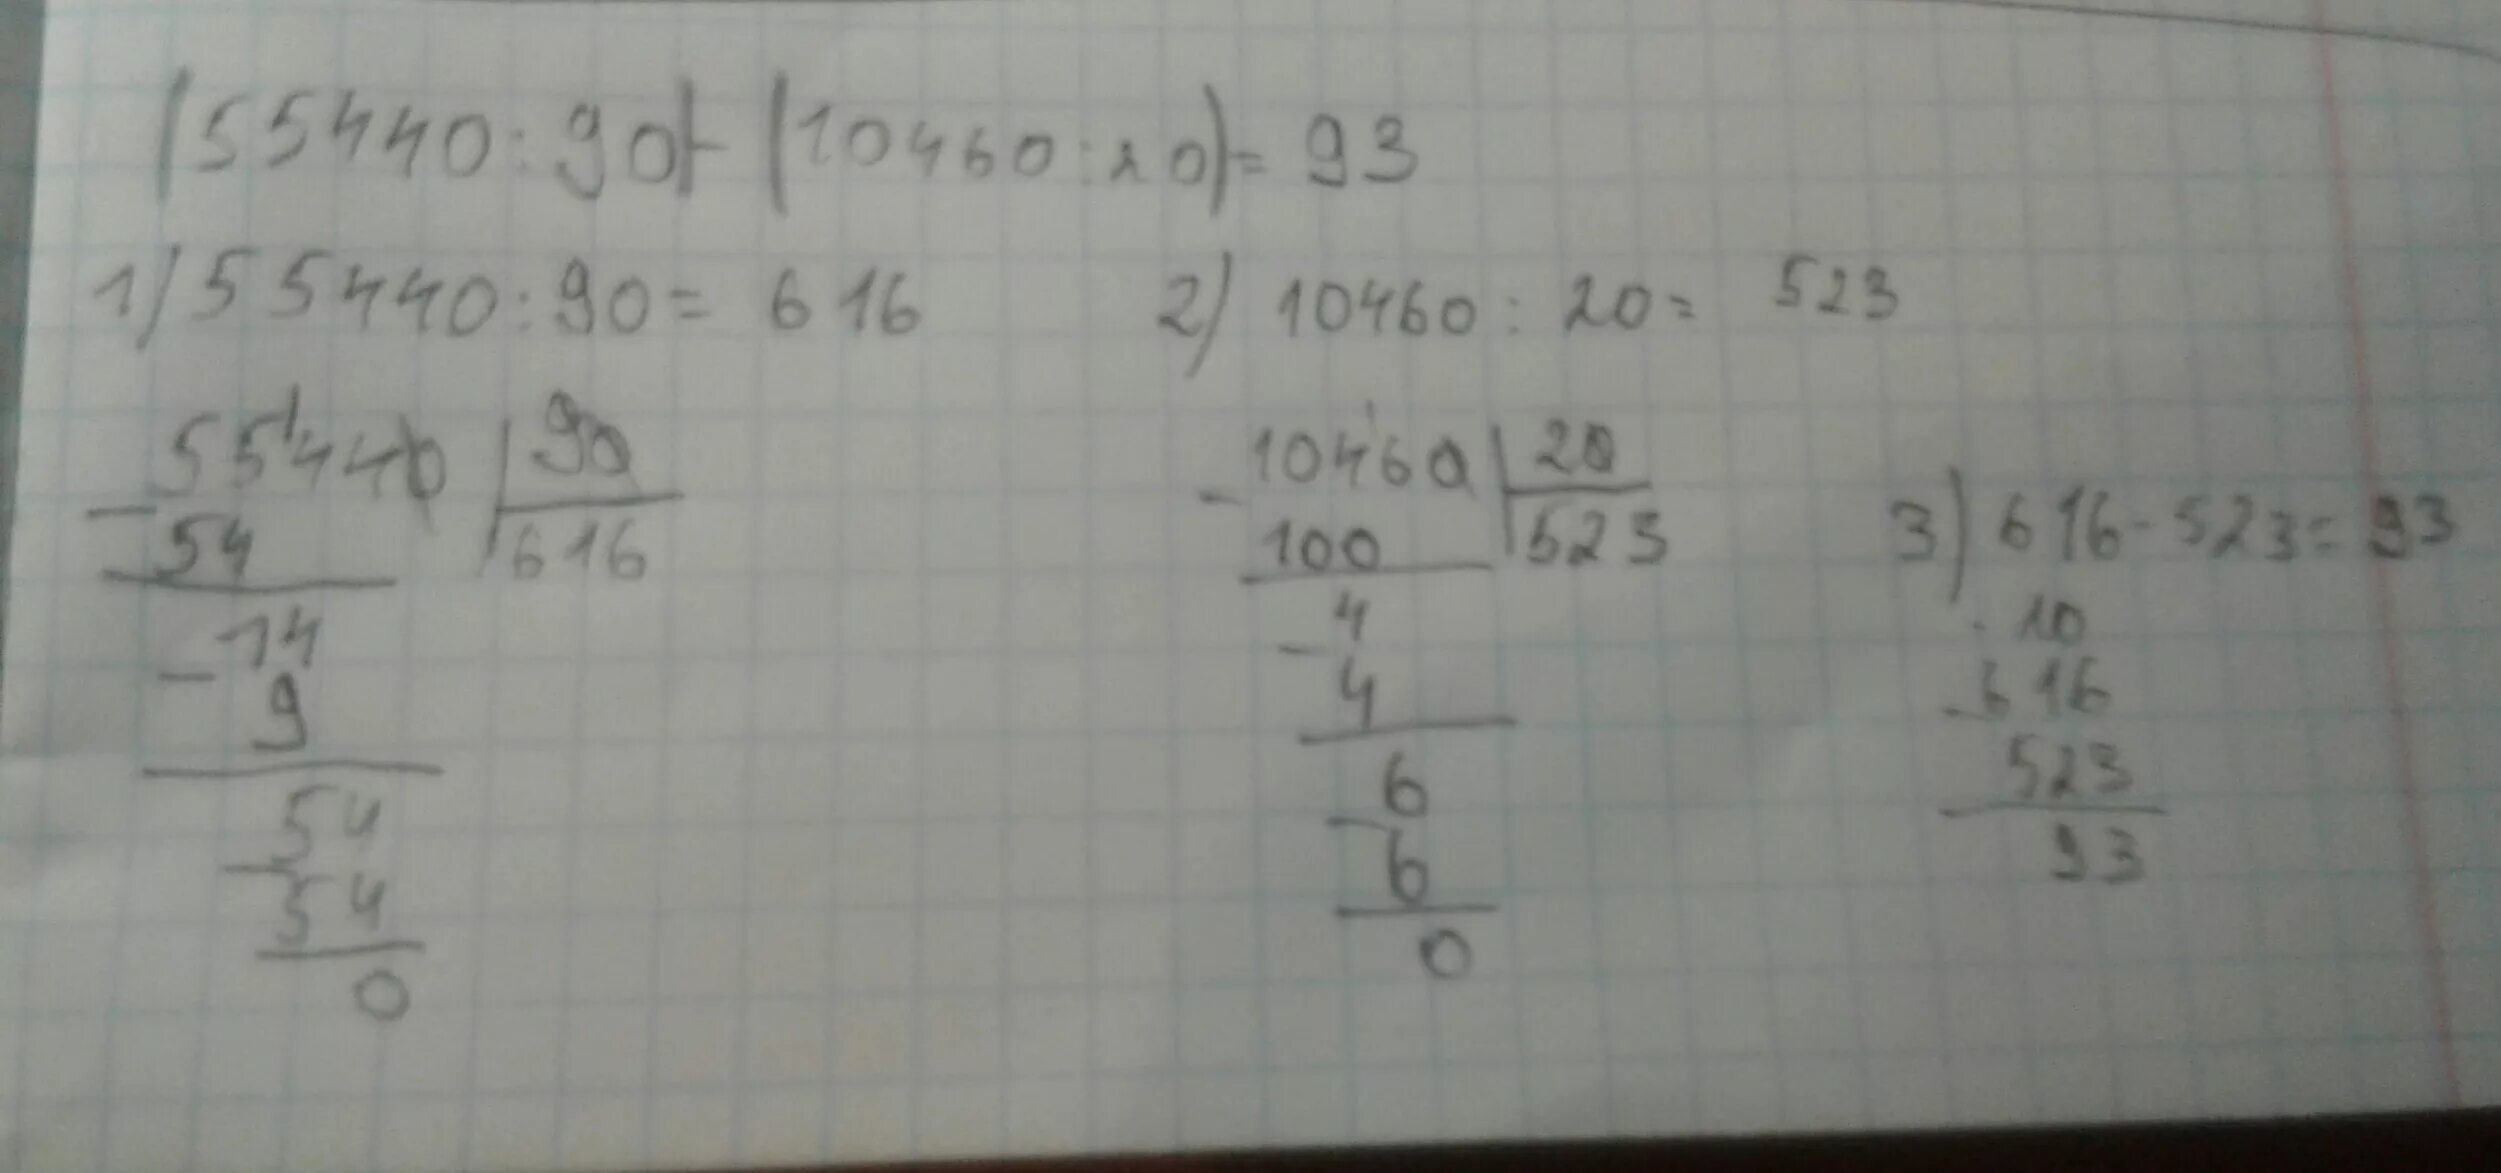 (55440:90)-(10460:20)=93
1) 55440:90=616
2) 10460:20= 523
55440 90
- 54 616
- 14
9
- 54
54
0
10460 20
- 100 523
- 4
4
- 6
6
0
3) 616-523=93
. 10
- 616
523
93